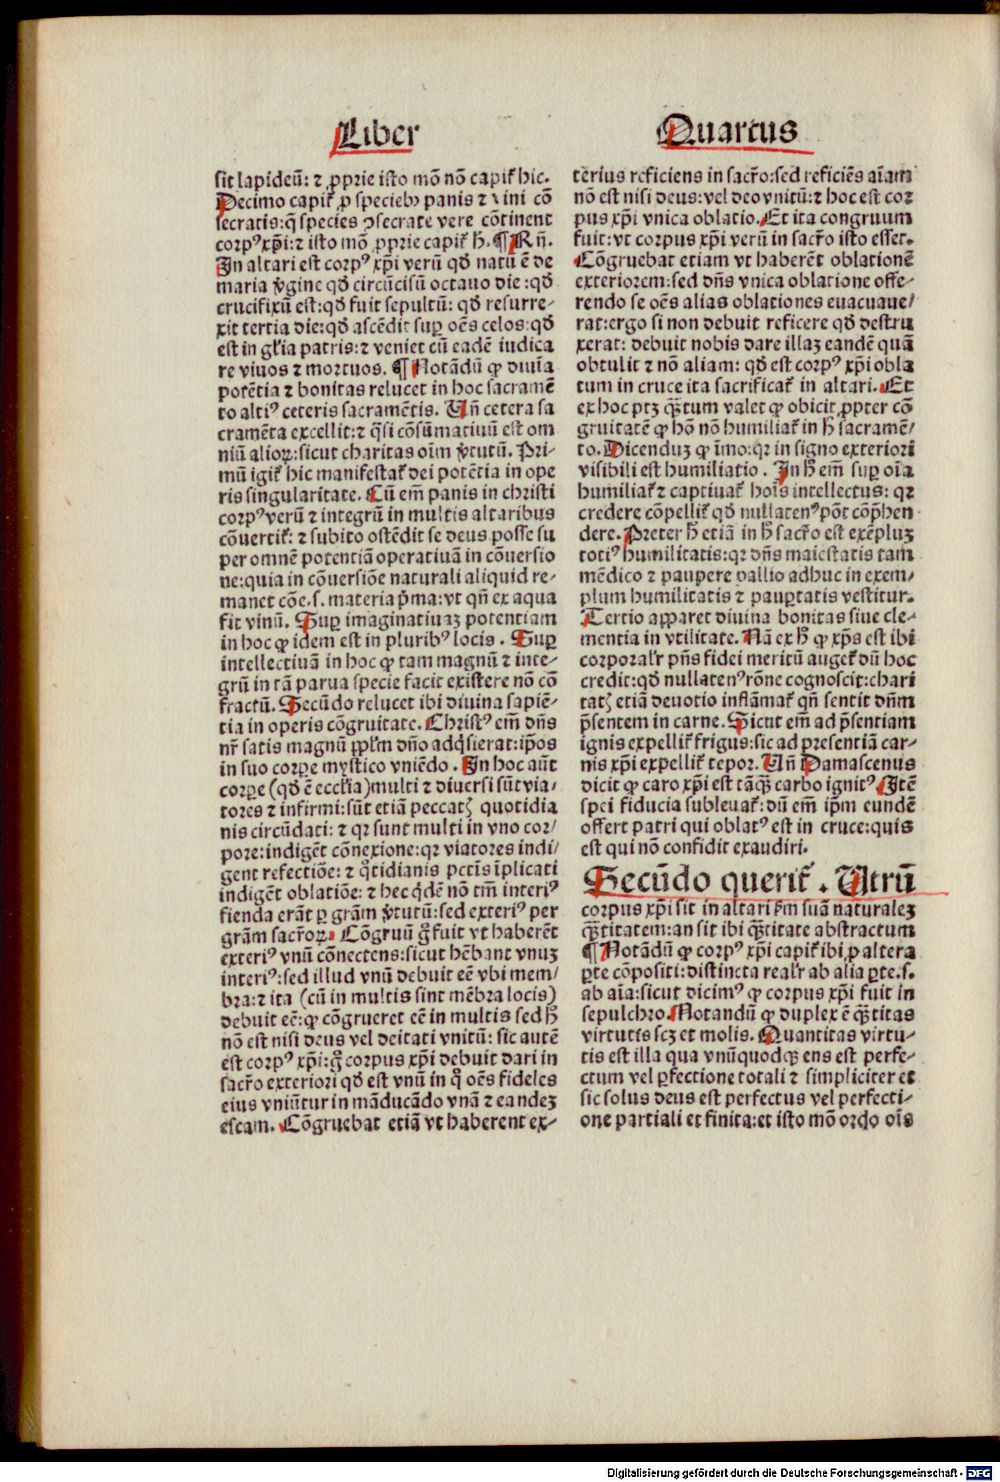 Liber
Quartus
sit lapideū: ⁊ ꝓprie isto mō nō capit̄ hic.
Decimo capit̄ ꝓ specieb⁹ panis ⁊ vini cō
secratis: q̄ species ꝯsecrate vere cōtinent
corp⁹ xp̄i: ⁊ isto mō ꝓprie capit̄ h̄. ¶ Rn̄.
In altari est corp⁹ xp̄i verū qd̄ natū ē de
maria v̄gine qd̄ circūcisū octauo die: qd̄
crucifixū est: qd̄ fuit sepultū: qd̄ resurre-
xit tertia die: qd̄ ascēdit suꝑ oēs celos: qd̄
est in gl̄ia patris: ⁊ veniet cū eadē iudica
re viuos ⁊ mortuos. ¶ Notādū ꝙ diuīa
potētia ⁊ bonitas relucet in hoc sacramē
to alti⁹ ceteris sacramētis. Un̄ cetera sa
cramēta excellit: ⁊ q̄si cōsūmatiuū est om
niū alioꝝ: sicut charitas oīm v̄tutū. Pri-
mū igit̄ hic manifestat̄ dei potētia in ope
ris singularitate. Cū em̄ panis in christi
corp⁹ verū ⁊ integrū in multis altaribus
cōuertit̄: ⁊ subito ostēdit se deus posse su
per omnē potentiā operatiuā in cōuersio
ne: quia in cōuersiōe naturali aliquid re-
manet cōe. s. materia p̄ma: vt qn̄ ex aqua
fit vinū. Suꝑ imaginatiuaꝫ potentiam
in hoc ꝙ idem est in plurib⁹ locis. Suꝑ
intellectiuā in hoc ꝙ tam magnū ⁊ inte-
grū in tā parua specie facit existere nō cō
fractū. Secūdo relucet ibi diuina sapiē-
tia in operis cōgruitate. Christ⁹ em̄ dn̄s
nr̄ satis magnū ppl̄m dn̄o adq̄sierat: ip̄os
in suo corꝑe mystico vniēdo. In hoc aūt
corꝑe (qd̄ ē eccl̄ia) multi ⁊ diuersi sūt via-
tores ⁊ infirmi: sūt etiā peccatꝭ quotidia
nis circūdati: ⁊ qꝛ sunt multi in vno cor-
pore: indigēt cōnexione: qꝛ viatores indi-
gent refectiōe: ⁊ q̄tidianis pctīs īplicati
indigēt oblatiōe: ⁊ hec q̄dē nō tm̄ interi⁹
fienda erāt ꝑ grām v̄tutū: sed exteri⁹ per
grām sacr̄oꝝ. Cōgruū g̊ fuit vt haberēt
exteri⁹ vnū cōnectens: sicut hēbant vnuꝫ
interi⁹: sed illud vnū debuit eē vbi mem-
bra: ⁊ ita (cū in multis sint mēbra locis)
debuit eē: ꝙ cōgrueret eē in multis sed h̄
nō est nisi deus vel deitati vnitū: sic autē
est corp⁹ xp̄i: g̊ corpus xp̄i debuit dari in
sacr̄o exteriori qd̄ est vnū in q̊ oēs fideles
eius vniūtur in māducādo vnā ⁊ eandeꝫ
escam. Cōgruebat etiā vt haberent ex-
terius reficiens in sacr̄o: sed reficiēs aīam
nō est nisi deus: vel deo vnitū: ⁊ hoc est cor
pus xp̄i vnica oblatio. Et ita congruum
fuit: vt corpus xp̄i verū in sacr̄o isto esset.
Cōgruebat etiam vt haberēt oblationē
exteriorem: sed dn̄s vnica oblatione offe-
rendo se oēs alias oblationes euacuaue-
rat: ergo si non debuit reficere qd̄ destru
xerat: debuit nobis dare illaꝫ eandē quā
obtulit ⁊ nō aliam: qd̄ est corp⁹ xp̄i obla
tum in cruce ita sacrificat̄ in altari. Et
ex hoc ptꝫ q̄stum valet ꝙ obicit̄ ꝓpter cō
gruitatē ꝙ hō nō humiliat̄ in h̄ sacramē-
to. Dicenduꝫ ꝙ īmo: qꝛ in signo exteriori
visibili est humiliatio. In h̄ em̄ suꝑ oīa
humiliat̄ ⁊ captiuat̄ hoīs intellectus: qꝛ
credere cōpellit̄ qd̄ nullaten⁹ pōt cōp̄hen
dere. Preter h̄ etiā in h̄ sacr̄o est exēpluꝫ
toti⁹ humilitatis: qꝛ dn̄s maiestatis tam
mēdico ⁊ paupere pallio adhuc in exem-
plum humilitatis ⁊ pauꝑtatis vestitur.
Tertio apparet diuina bonitas siue cle-
mentia in vtilitate. Nā ex h̄ ꝙ xp̄s est ibi
corporalr̄ pn̄s fidei meritū auget̄ dū hoc
credit: qd̄ nullaten⁹ rōne cognoscit: chari
tatꝭ etiā deuotio inflāmat̄ qn̄ sentit dn̄m
p̄sentem in carne. Sicut em̄ ad p̄sentiam
ignis expellit̄ frigus: sic ad presentiā car-
nis xp̄i expellit̄ tepor. Un̄ Damascenus
dicit ꝙ caro xp̄i est tāq̄ꝫ carbo ignit⁹. Itē
spei fiducia subleuat̄: dū em̄ ip̄m eundē
offert patri qui oblat⁹ est in cruce: quis
est qui nō confidit exaudiri.
Secūdo querit̄. Utrū
corpus xp̄i sit in altari s̄m suā naturaleꝫ
q̄ꝫtitatem: an sit ibi q̄ꝫtitate abstractum
¶ Notādū ꝙ corp⁹ xp̄i capit̄ ibi ꝓ altera
ꝑte cōpositi: distincta realr̄ ab alia ꝑte. s.
ab aīa: sicut dicim⁹ ꝙ corpus xp̄i fuit in
sepulchro. Notandū ꝙ duplex ē q̄ꝫtitas
virtutis scꝫ et molis. Quantitas virtu-
tis est illa qua vnūquodqꝫ ens est perfe-
ctum vel ꝑfectione totali ⁊ simpliciter et
sic solus deus est perfectus vel perfecti-
one partiali et finita: et isto mō ordo oīs
Digitalisierung gefördert durch die Deutsche Forschungsgemeinschaft - DFG